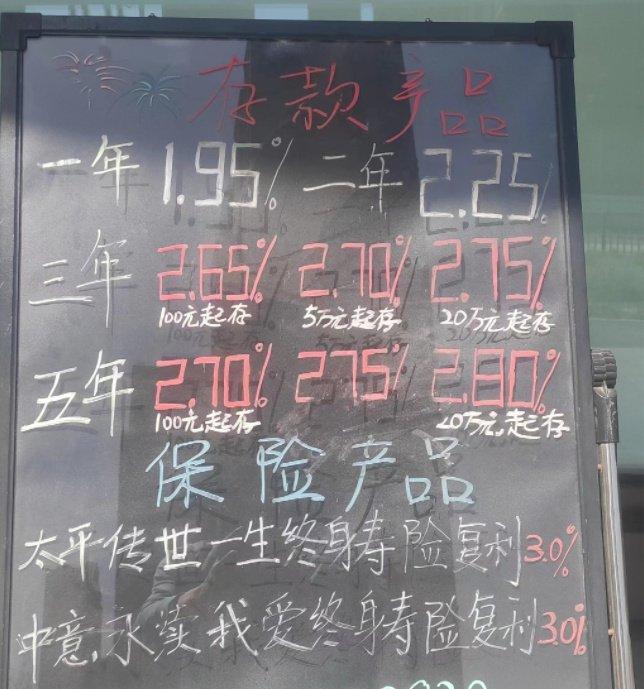 存款产品
一年 1.95% 二年 2.25%
三年 2.65% 2.70% 2.75%
100元起存 5万元起存 20万元起存
五年 2.70% 275% 2.80%
100元起存 20万元起存
保险产品
太平传世一生终身寿险复利3.0%
中意永续我爱终身寿险复利3.0%